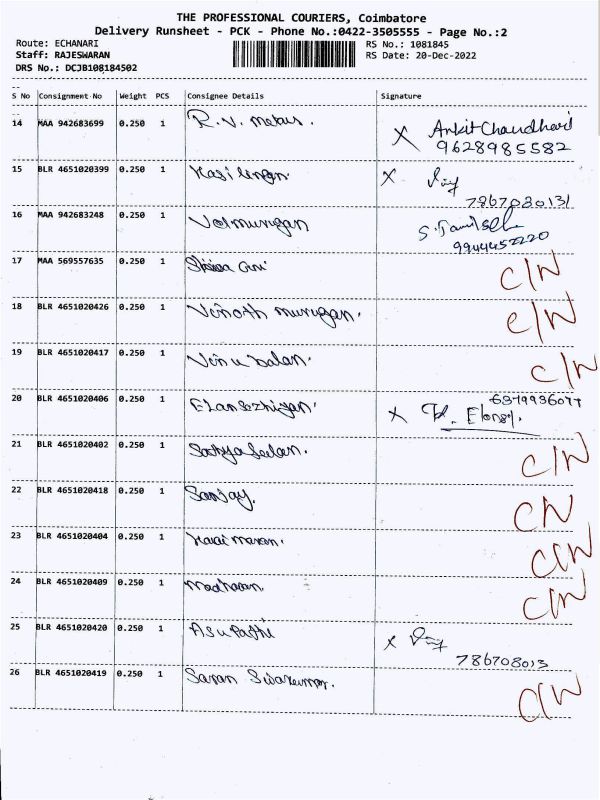 THE PROFESSIONAL COURIERS, Coimbatore
Delivery Runsheet - PCK - Phone No.:0422-3505555 - Page No.:2
Route: ECHANARI RS No.: 1081845
Staff: RAJESWARAN RS Date: 20-Dec-2022
DRS No.: DCJB108184502
S No Consignment No Weight PCS Consignee Details Signature
14 MAA 942683699 0.250 1 R.V. metals. X Ankit Chaudhari
9628985582
15 BLR 4651020399 0.250 1 Kasi lingan. X
7867080131
16 MAA 942683248 0.250 1 Velmurugan S. Tamilsel
9944452220
17 MAA 569557635 0.250 1 C/N
18 BLR 4651020426 0.250 1 Vinoth murugan. C/N
19 BLR 4651020417 0.250 1 Venu balan. C/N
20 BLR 4651020406 0.250 1 Elansezhiyan. 6379936077
X
21 BLR 4651020402 0.250 1 Sathyaseelan. C/N
22 BLR 4651020418 0.250 1 Sanjay. C/N
23 BLR 4651020404 0.250 1 Harimaran. C/N
24 BLR 4651020409 0.250 1 Madhavan C/N
25 BLR 4651020420 0.250 1 Asupathi X
786708013
26 BLR 4651020419 0.250 1 Saran Sivakumar. C/N